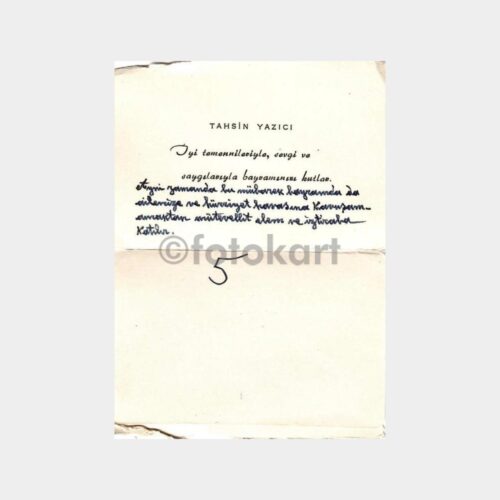 TAHSİN YAZICI
İyi temennileriyle, sevgi ve
saygılarıyla bayramınızı kutlar.
Ayni zamanda bu mübarek bayramda da
ailenize ve hürriyet havasına kavuşam-
amaktan mütevellit elem ve iztiraba
Katılır.
©fotokart
5